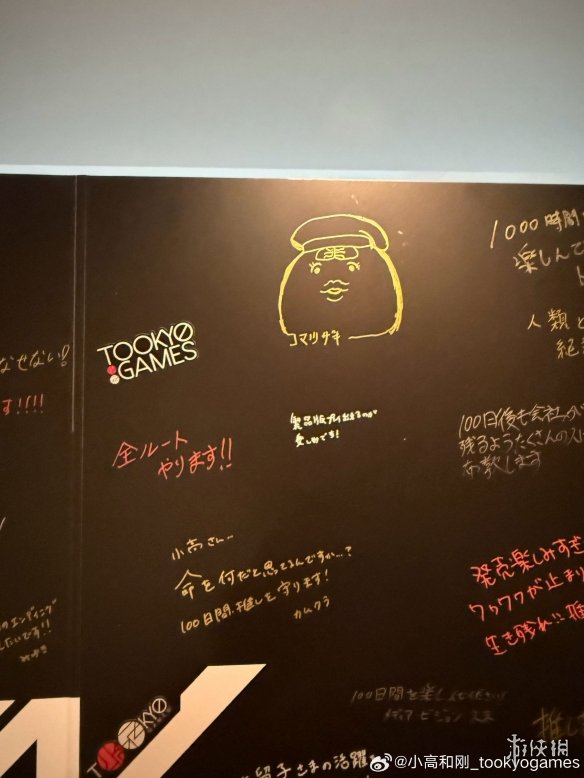 1000時間
楽しんで
人類と
コマツザキ
TOOKYO
GAMES
なせない!
す!!!!
全ルート
やります!!
製品版プレイ出来るのが
楽しみです!
100日後も会社が
残るようたくさんの人に
布教します
小高さん…
命を何だと思ってるんですか…?
100日間、推しを守ります!
カムクラ
発売楽しみすぎ
ワクワクが止まり
生き残れ!!
のエンディング
たいです!!
100日間を楽しんでください!
メディアビジョン
推し
TOOKYO
留子さまの活躍
@小高和刚_tookyogames
游侠網